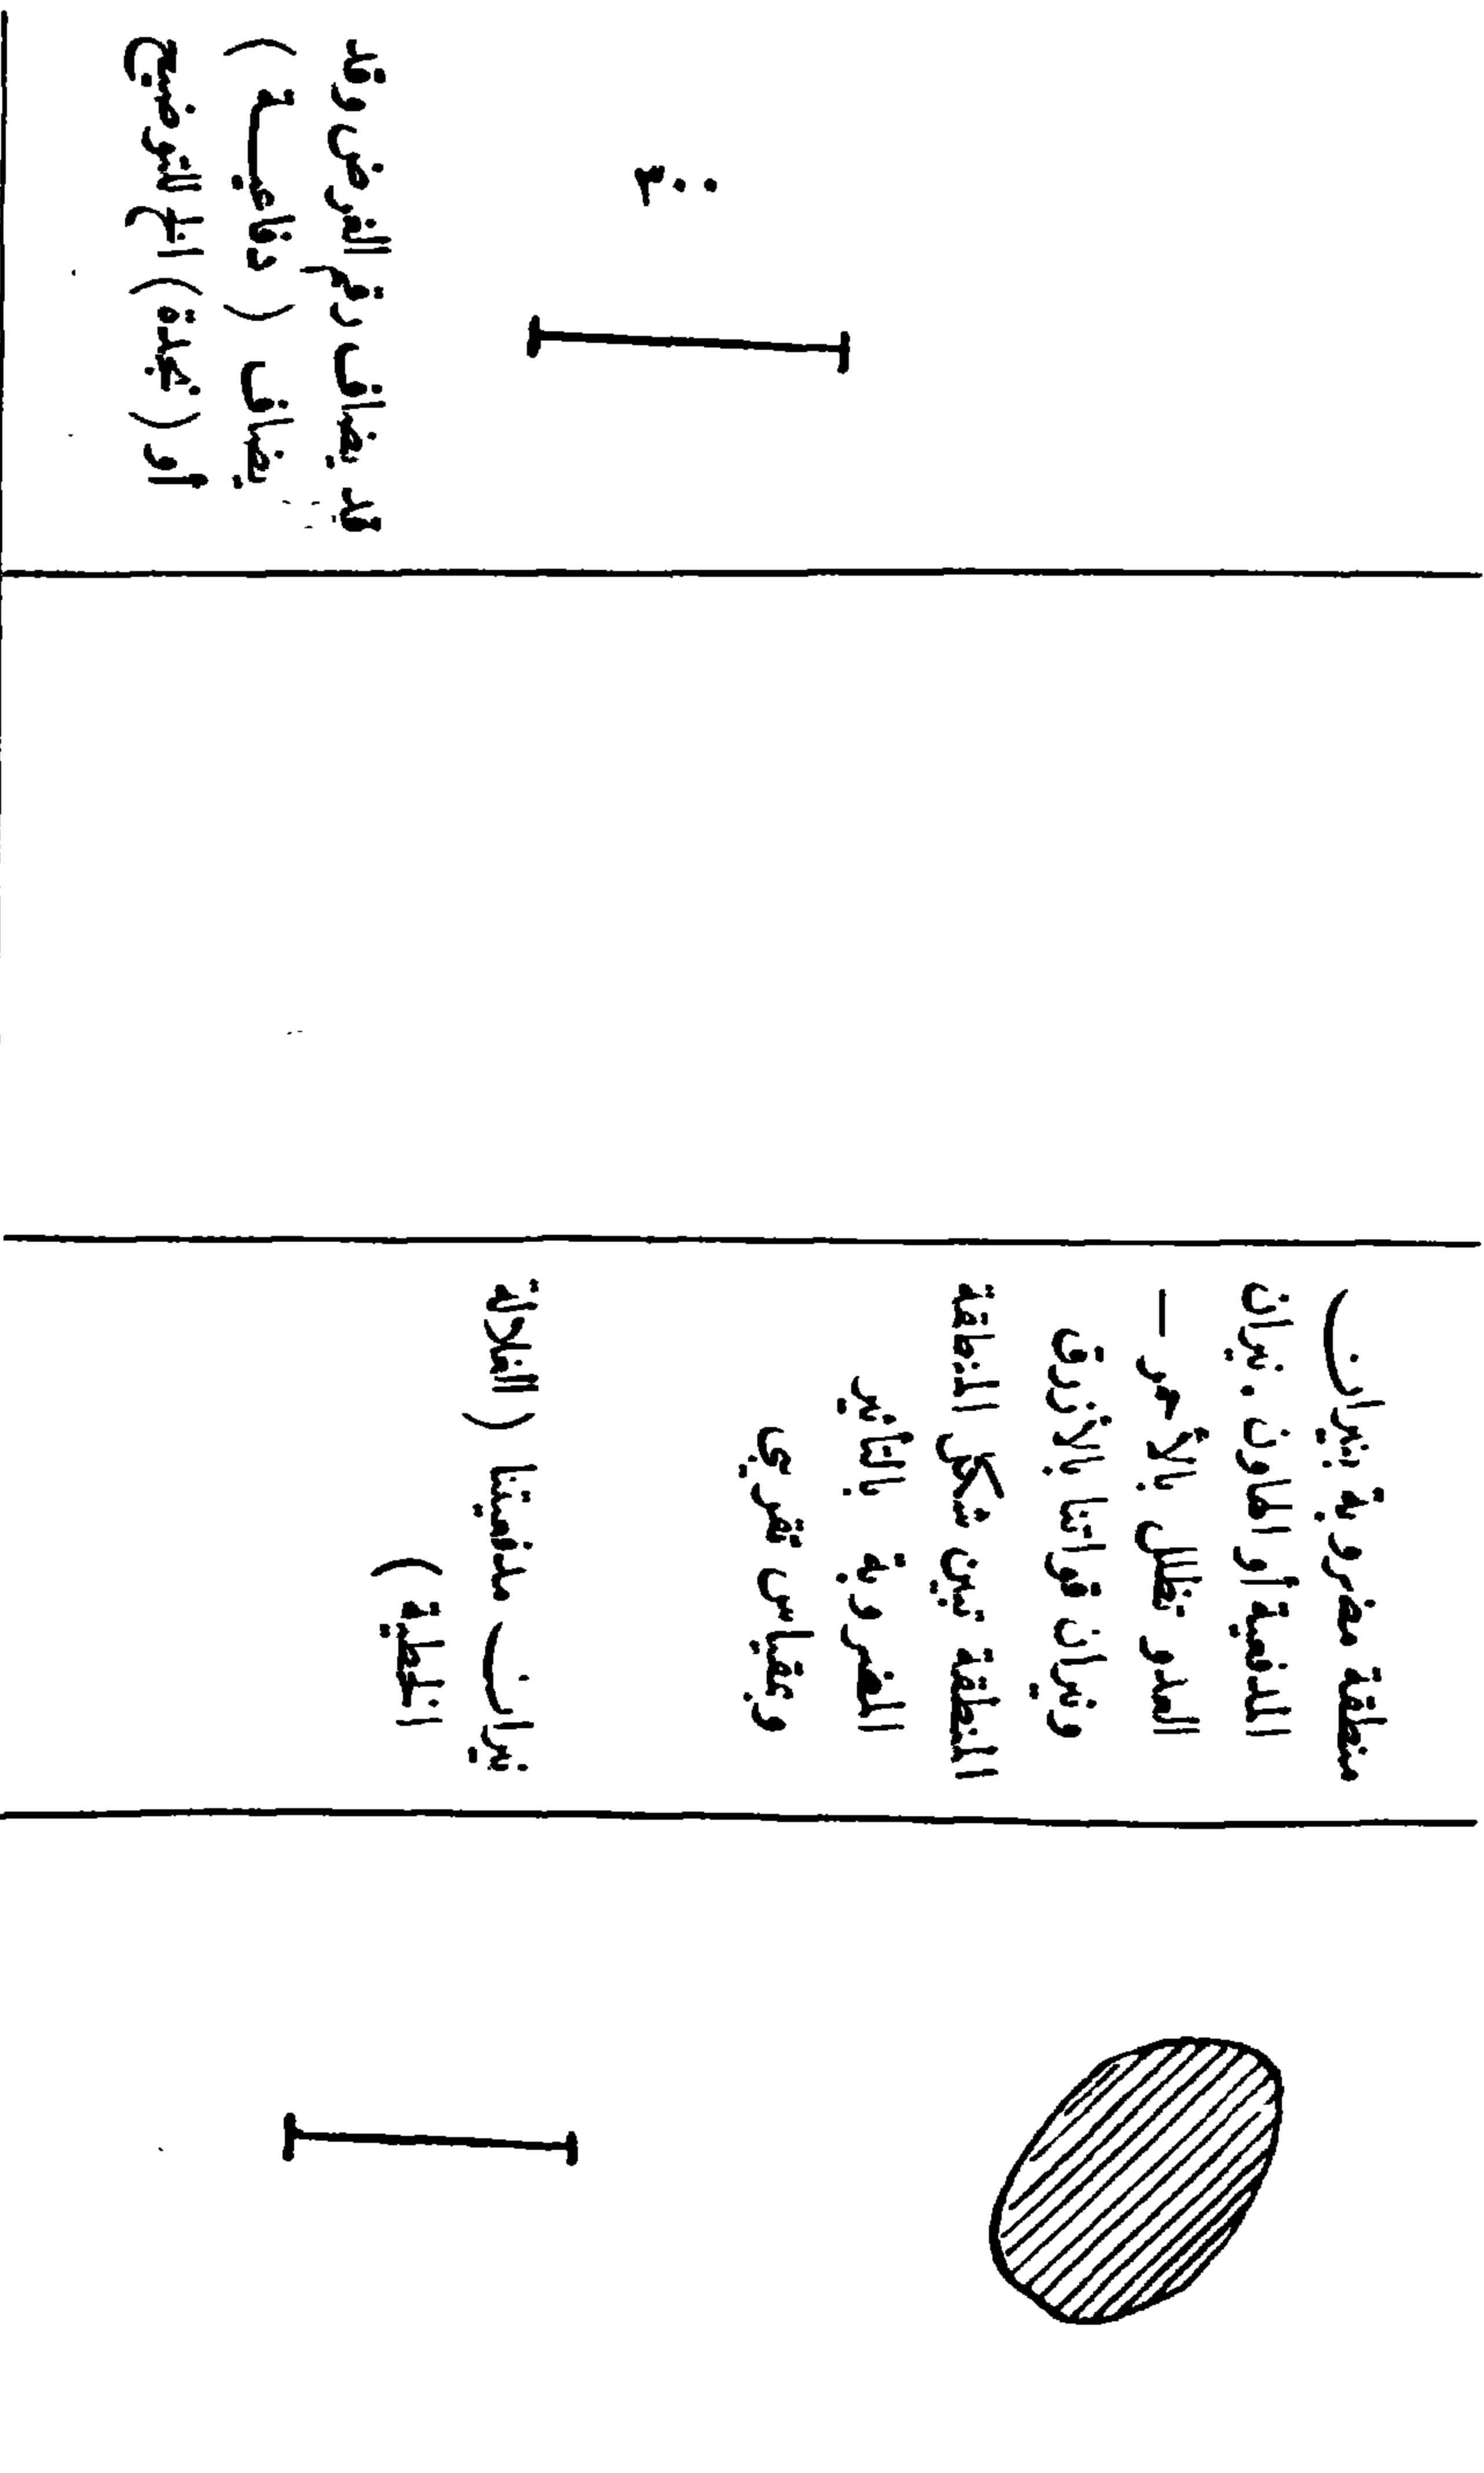 منطقة مضروبة بنيران
المشاة أو الهاون . نيران
العدو تظلل بالأحمر —
ونيران قواتنا بالأزرق
المنطقة تبين شكل المنطقة
المضروبة بالتأثير
ومقياس تقريبي
نيران مدفعيتنا ( الغلالة
٣٠٠
قد يضاف رقم الغرض وقد
يضاف ( دفاعي م )
أو ( نجدة ) الخ للتوضيح